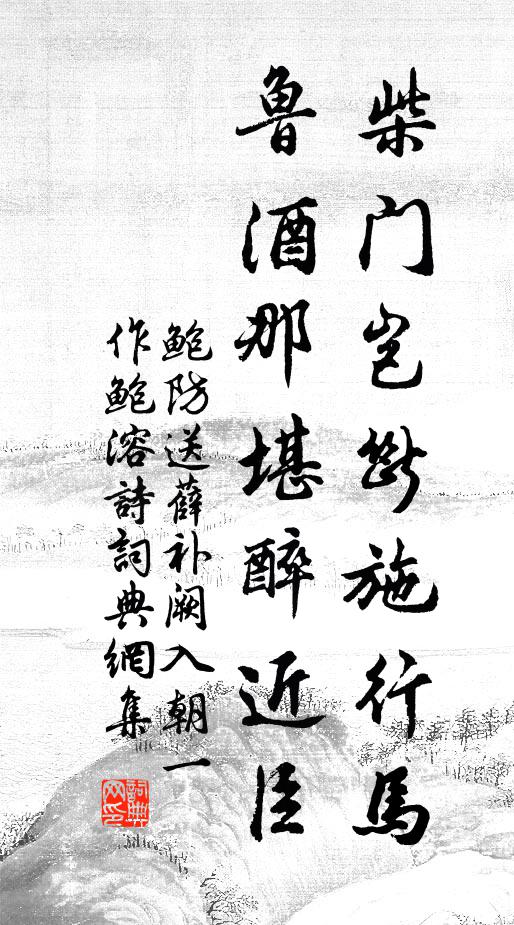 柴门岂断施行馬
魯酒那堪醉近臣
鮑防送薛补阙入朝一
作鮑溶詩詞典網集
詞典
网印